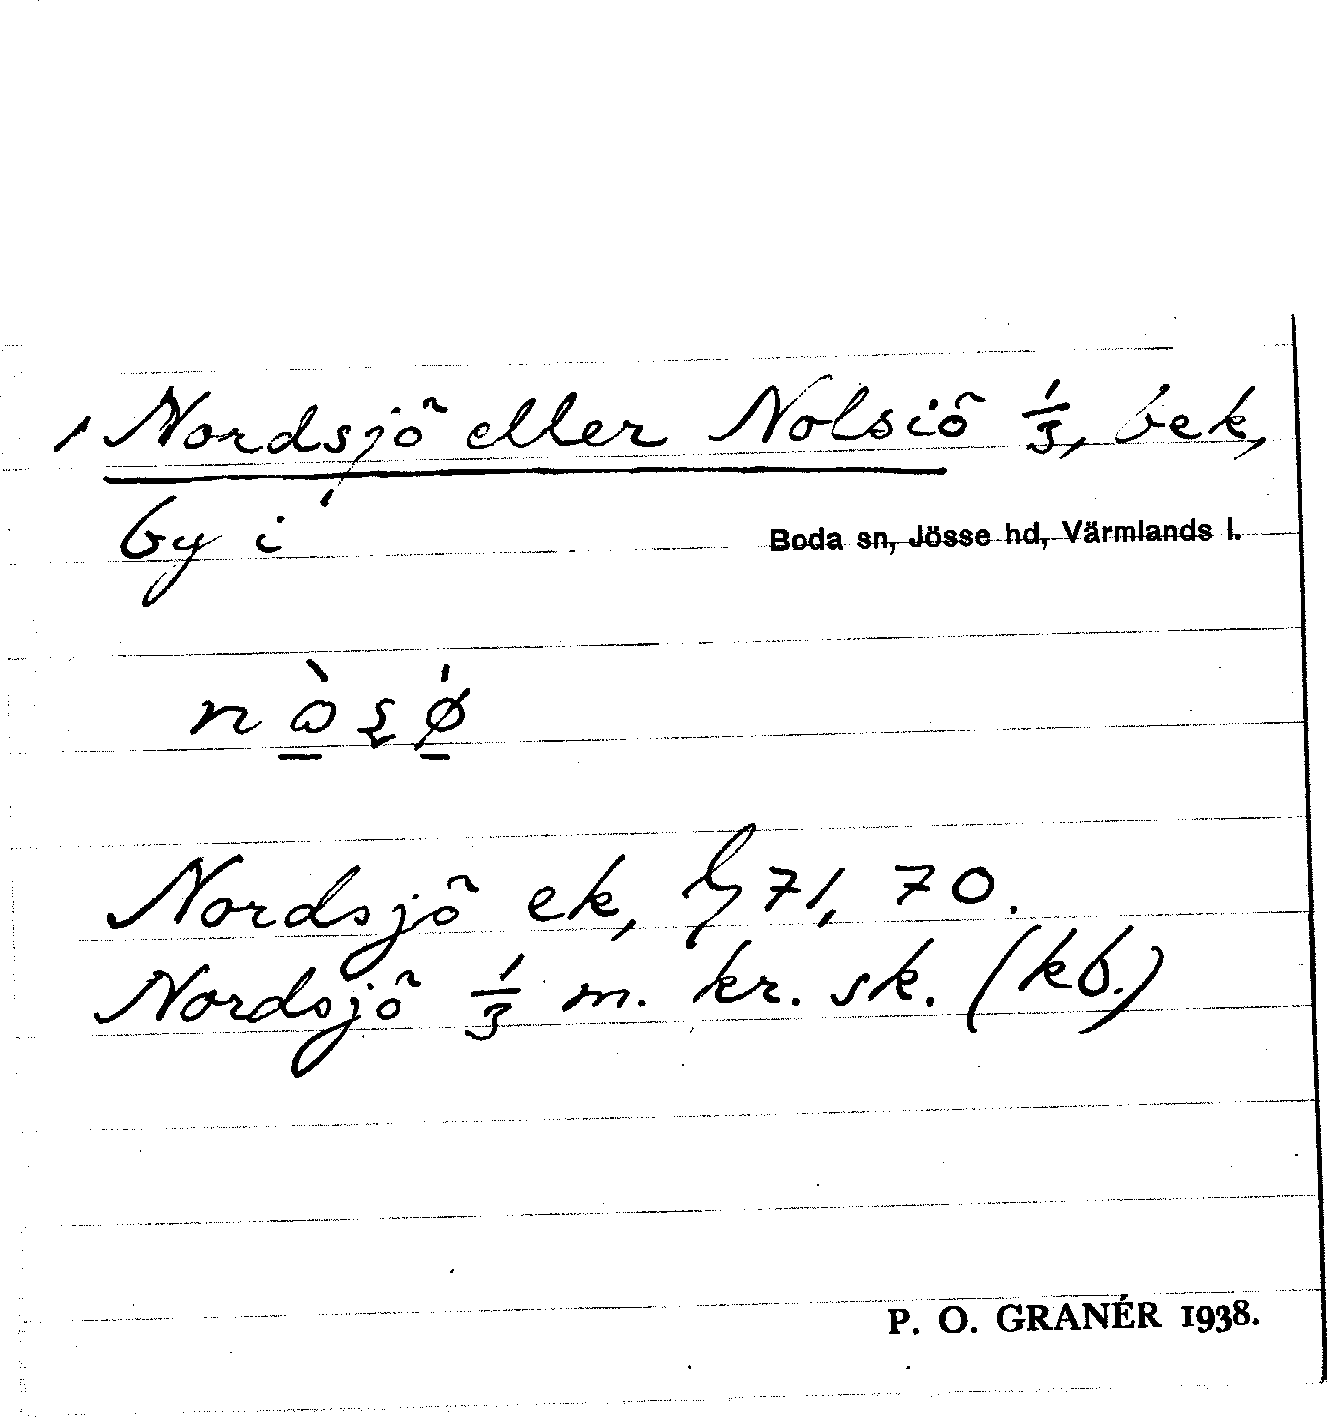 Nordsjö eller Nolsiö 1/3, bek,
by i Boda sn, Jösse hd, Värmlands l.
Nordsjö ek, G 71, 70.
Nordsjö 1/3 m. kr. sk. (kb.)
P. O. GRANÉR 1938.